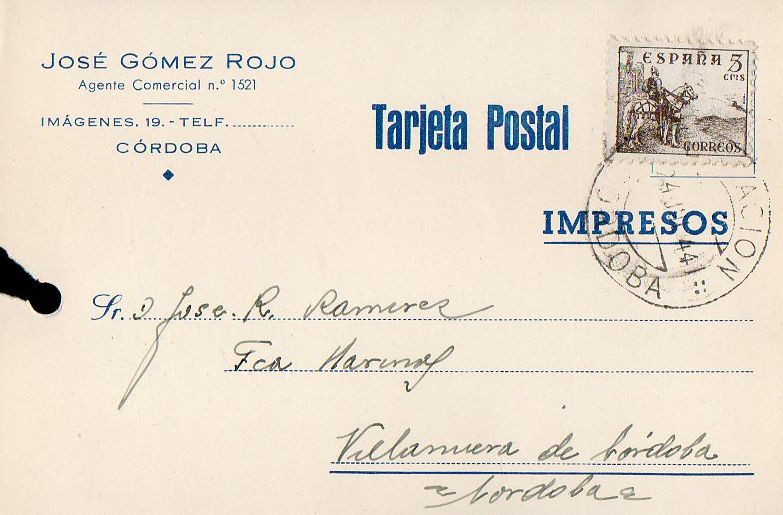 JOSÉ GÓMEZ ROJO
Agente Comercial n.º 1521
IMÁGENES, 19. - TELF.
CÓRDOBA
Tarjeta Postal
ESPAÑA 5
CTS
CORREOS
IMPRESOS
44
CORDOBA
Sr. D Jose R. Ramirez
Fca Harinas
Villanueva de Córdoba
=Cordoba=